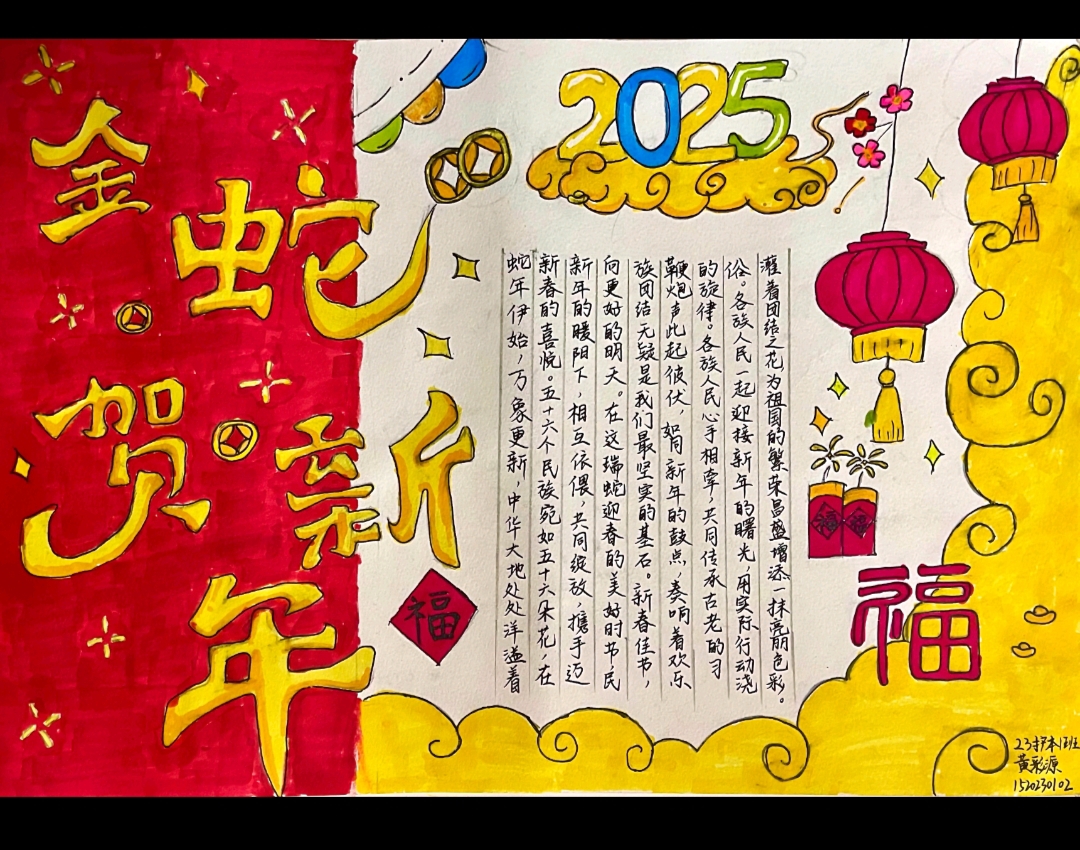 金蛇
贺新年
2025
蛇年伊始，万象更新，中华大地处处洋溢着
新春的喜悦。五十六个民族宛如五十六朵花，在
新年的暖阳下，相互依偎，共同绽放，携手迈
向更好的明天。在这瑞蛇迎春的美好时节，民
族团结无疑是我们最坚实的基石。新春佳节，
鞭炮声此起彼伏，如同新年的鼓点，奏响着欢乐
的旋律。各族人民心手相牵，共同传承古老的习
俗。各族人民一起迎接新年的曙光，用实际行动浇
灌着团结之花为祖国的繁荣昌盛增添一抹亮丽色彩。
福
福
福
福
23护本1班
黄彩源
1520230102